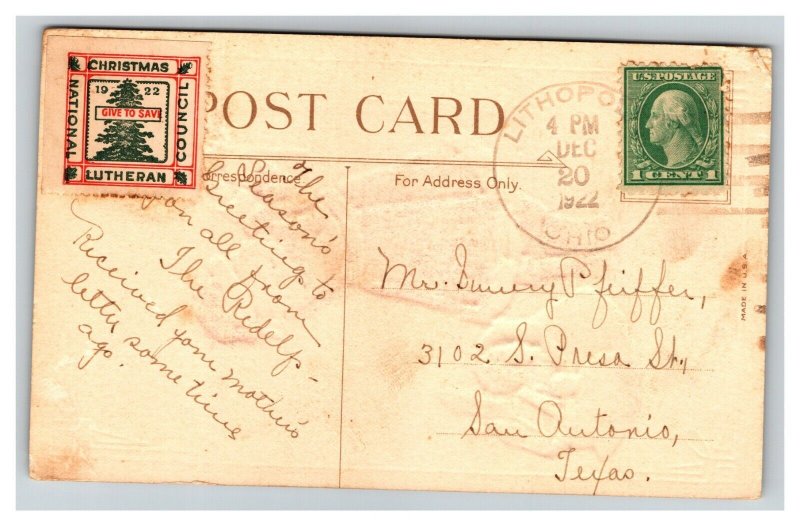 CHRISTMAS
1922
GIVE TO SAVE
NATIONAL
COUNCIL
LUTHERAN
POST CARD
LITHOPO
4 PM
DEC
20
1922
OHIO
U.S. POSTAGE
1 CENT 1
Correspondence
For Address Only.
The
Season's
Greetings to
you all from
The Ridelfs-
Received your mother's
letter some time
ago.
Mr. Pfeiffer,
3102 S. Presa St.,
San Antonio,
Texas.
MADE IN U.S.A.